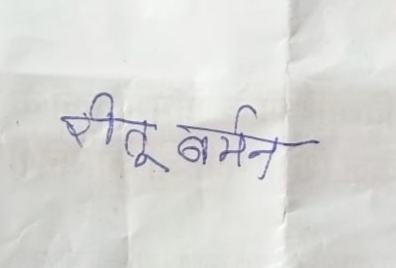 रीतू बर्मन